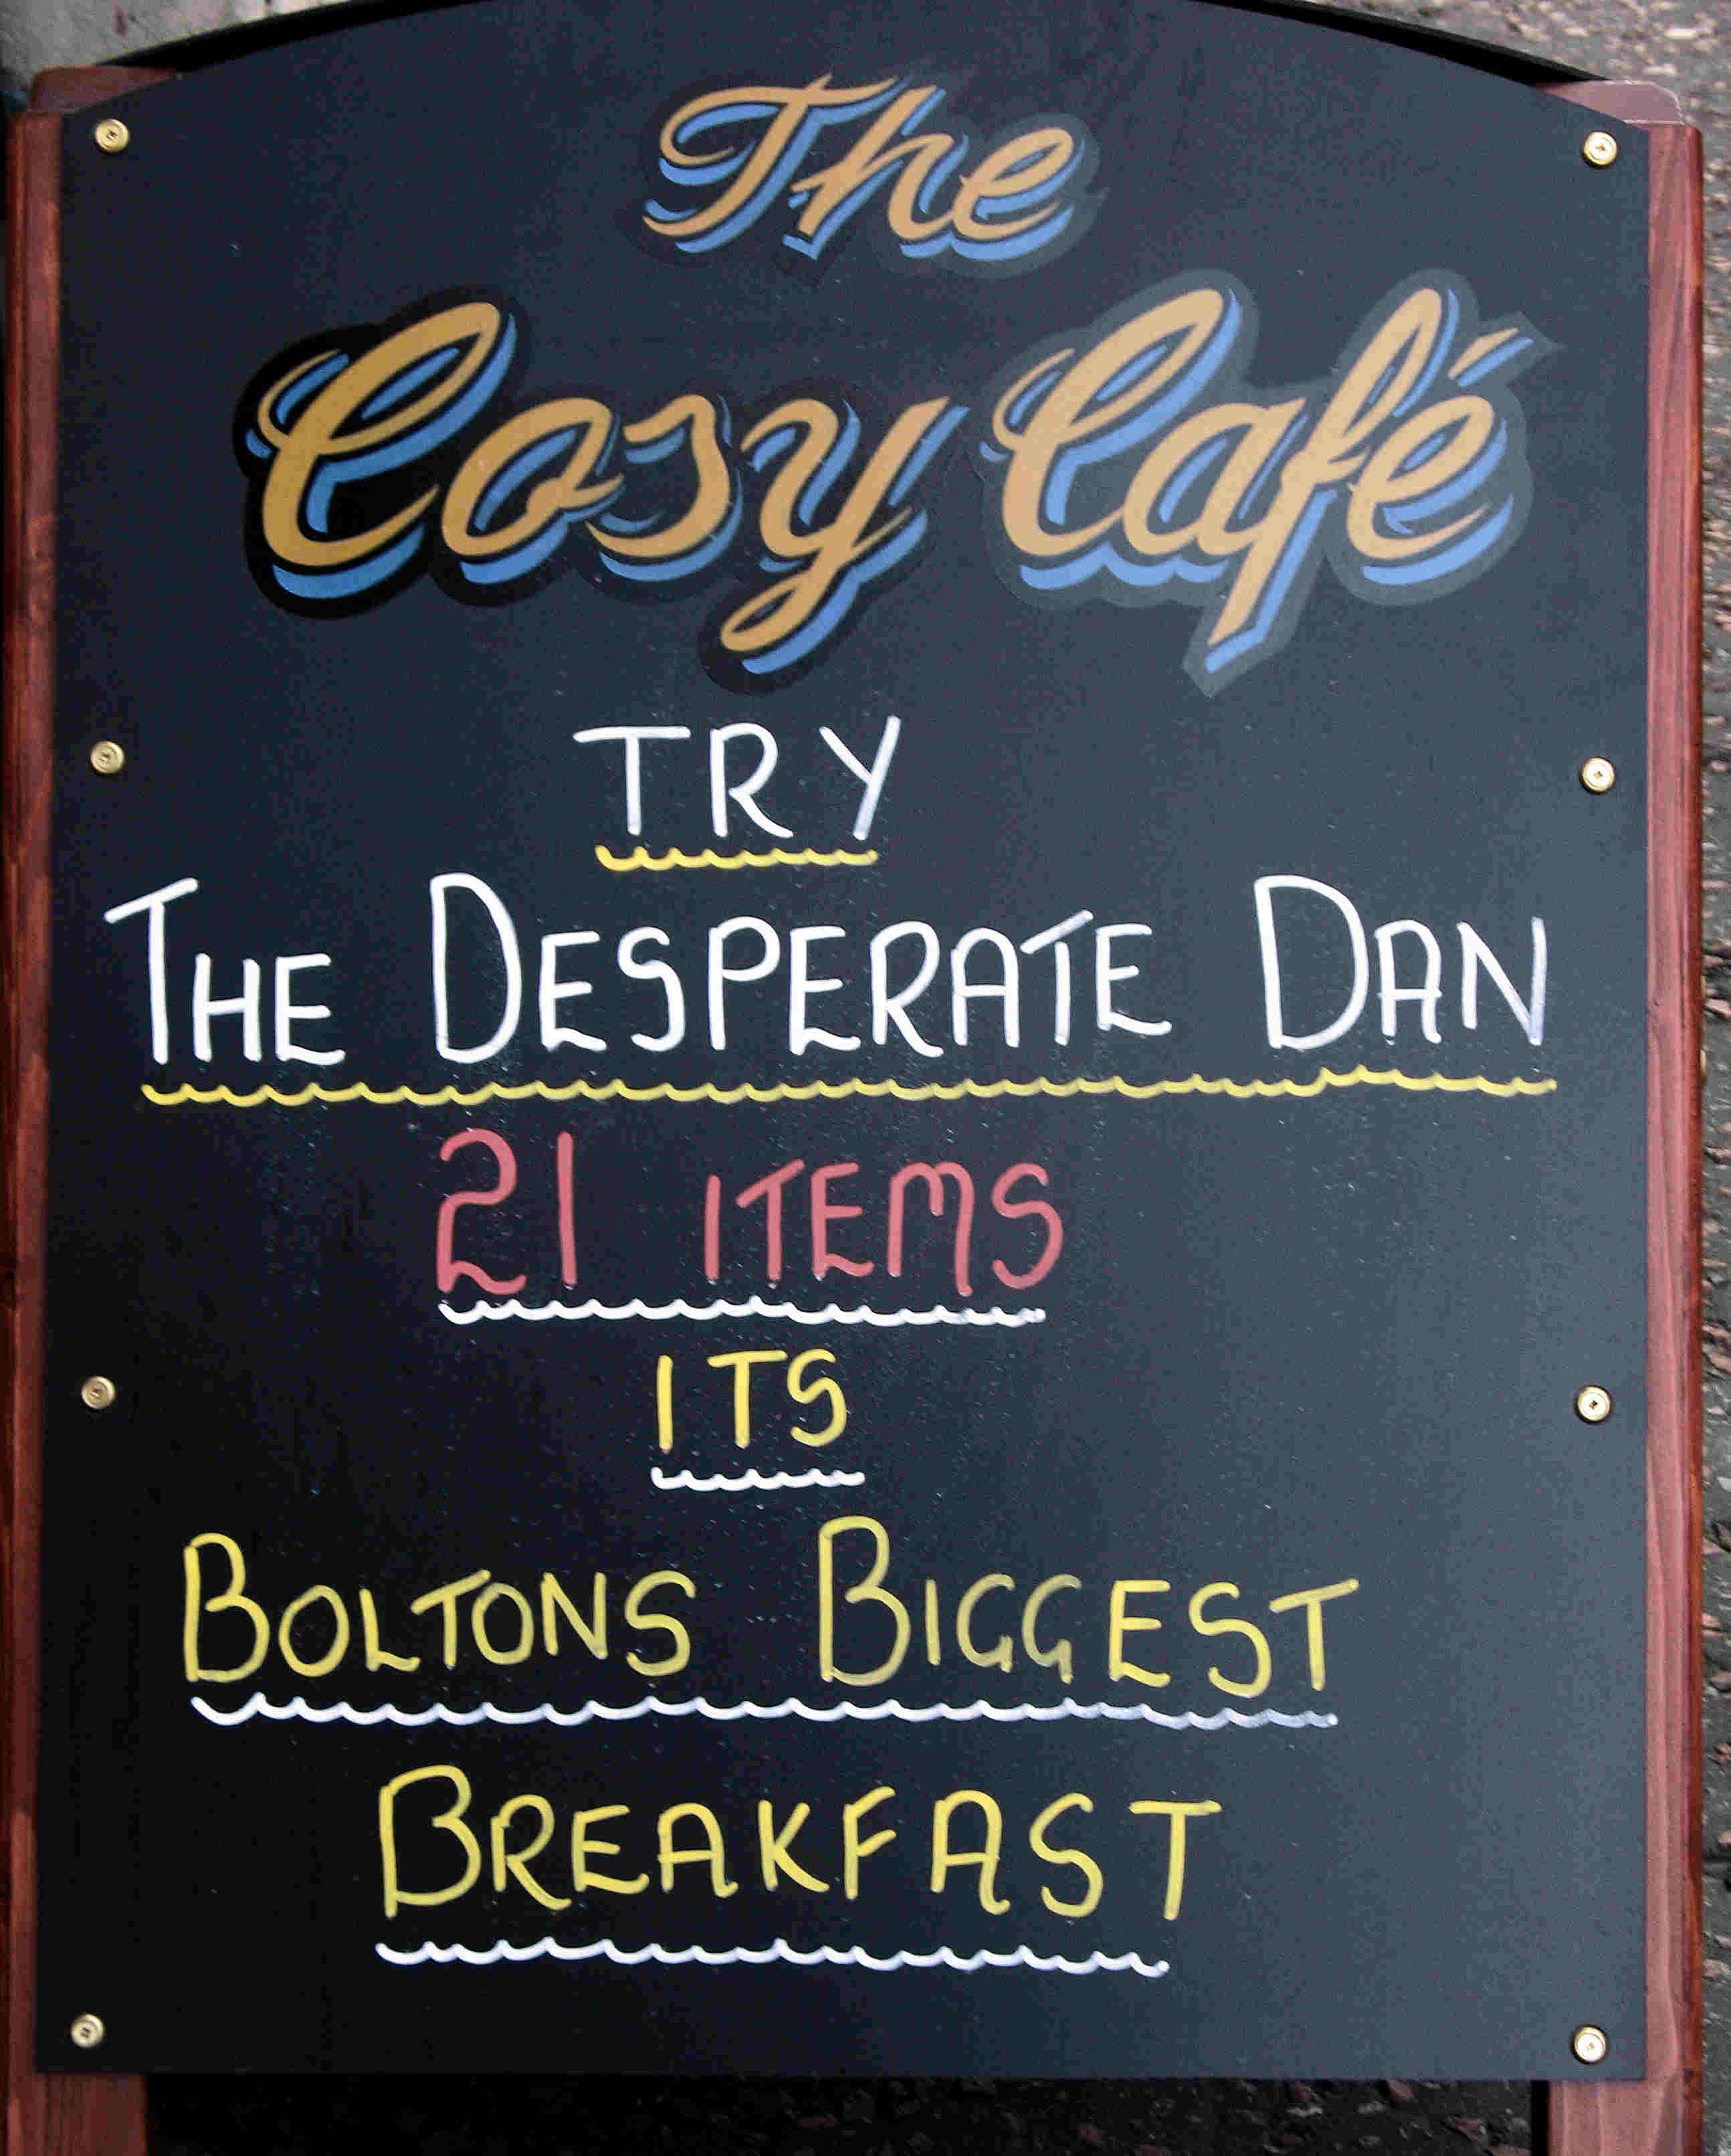 The
Cosy Café
TRY
THE DESPERATE DAN
21 ITEMS
ITS
BOLTONS BIGGEST
BREAKFAST